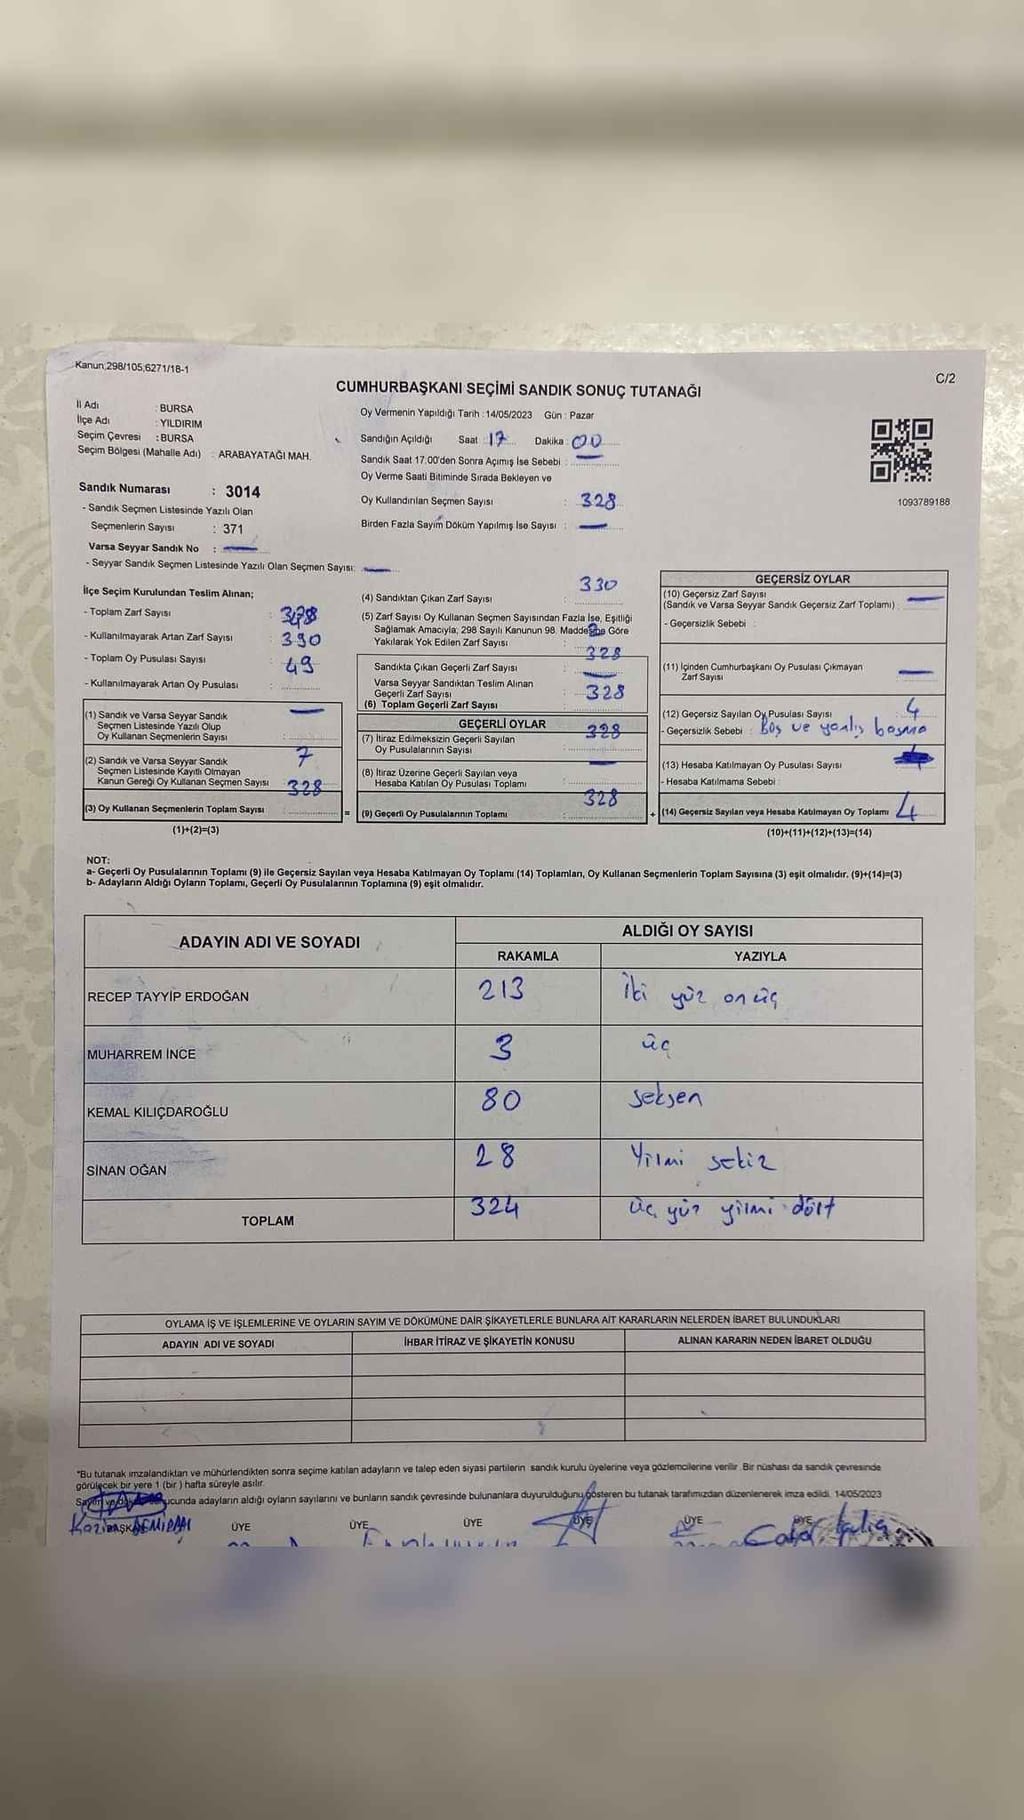 Kanun;298/105;6271/18-1
C/2
CUMHURBAŞKANI SEÇİMİ SANDIK SONUÇ TUTANAĞI
İl Adı : BURSA
İlçe Adı : YILDIRIM
Seçim Çevresi : BURSA
Seçim Bölgesi (Mahalle Adı) : ARABAYATAĞI MAH.
Sandık Numarası : 3014
- Sandık Seçmen Listesinde Yazılı Olan
Seçmenlerin Sayısı : 371
Varsa Seyyar Sandık No : —
- Seyyar Sandık Seçmen Listesinde Yazılı Olan Seçmen Sayısı: —
Oy Vermenin Yapıldığı Tarih : 14/05/2023 Gün : Pazar
Sandığın Açıldığı Saat : 17 Dakika : 00
Sandık Saat 17.00'den Sonra Açımış İse Sebebi : —
Oy Verme Saati Bitiminde Sırada Bekleyen ve
Oy Kullandırılan Seçmen Sayısı : 328
Birden Fazla Sayım Döküm Yapılmış İse Sayısı : —
1093789188
İlçe Seçim Kurulundan Teslim Alınan;
- Toplam Zarf Sayısı :
- Kullanılmayarak Artan Zarf Sayısı : 330
- Toplam Oy Pusulası Sayısı : 49
- Kullanılmayarak Artan Oy Pusulası :
(1) Sandık ve Varsa Seyyar Sandık —
Seçmen Listesinde Yazılı Olup
Oy Kullanan Seçmenlerin Sayısı :
(2) Sandık ve Varsa Seyyar Sandık 7
Seçmen Listesinde Kayıtlı Olmayan
Kanun Gereği Oy Kullanan Seçmen Sayısı : 328
(3) Oy Kullanan Seçmenlerin Toplam Sayısı :
=
(1)+(2)=(3)
330
(4) Sandıktan Çıkan Zarf Sayısı :
(5) Zarf Sayısı Oy Kullanan Seçmen Sayısından Fazla İse, Eşitliği
Sağlamak Amacıyla; 298 Sayılı Kanunun 98. Maddesine Göre
Yakılarak Yok Edilen Zarf Sayısı :
328
Sandıkta Çıkan Geçerli Zarf Sayısı :
Varsa Seyyar Sandıktan Teslim Alınan —
Geçerli Zarf Sayısı : 328
(6) Toplam Geçerli Zarf Sayısı :
GEÇERLİ OYLAR
(7) İtiraz Edilmeksizin Geçerli Sayılan 328
Oy Pusulalarının Sayısı :
(8) İtiraz Üzerine Geçerli Sayılan veya —
Hesaba Katılan Oy Pusulası Toplamı :
328
(9) Geçerli Oy Pusulalarının Toplamı :
+
GEÇERSİZ OYLAR
(10) Geçersiz Zarf Sayısı —
(Sandık ve Varsa Seyyar Sandık Geçersiz Zarf Toplamı) :
- Geçersizlik Sebebi :
(11) İçinden Cumhurbaşkanı Oy Pusulası Çıkmayan —
Zarf Sayısı :
(12) Geçersiz Sayılan Oy Pusulası Sayısı : 4
- Geçersizlik Sebebi : Boş ve yanlış basma
(13) Hesaba Katılmayan Oy Pusulası Sayısı :
- Hesaba Katılmama Sebebi :
(14) Geçersiz Sayılan veya Hesaba Katılmayan Oy Toplamı : 4
(10)+(11)+(12)+(13)=(14)
NOT:
a- Geçerli Oy Pusulalarının Toplamı (9) ile Geçersiz Sayılan veya Hesaba Katılmayan Oy Toplamı (14) Toplamları, Oy Kullanan Seçmenlerin Toplam Sayısına (3) eşit olmalıdır. (9)+(14)=(3)
b- Adayların Aldığı Oyların Toplamı, Geçerli Oy Pusulalarının Toplamına (9) eşit olmalıdır.
ADAYIN ADI VE SOYADI ALDIĞI OY SAYISI
RAKAMLA YAZIYLA
RECEP TAYYİP ERDOĞAN 213 iki yüz on üç
MUHARREM İNCE 3 üç
KEMAL KILIÇDAROĞLU 80 seksen
SİNAN OĞAN 28 Yirmi sekiz
TOPLAM 324 üç yüz yirmi dört
OYLAMA İŞ VE İŞLEMLERİNE VE OYLARIN SAYIM VE DÖKÜMÜNE DAİR ŞİKAYETLERLE BUNLARA AİT KARARLARIN NELERDEN İBARET BULUNDUKLARI
ADAYIN ADI VE SOYADI İHBAR İTİRAZ VE ŞİKAYETİN KONUSU ALINAN KARARIN NEDEN İBARET OLDUĞU
*Bu tutanak imzalandıktan ve mühürlendikten sonra seçime katılan adayların ve talep eden siyasi partilerin sandık kurulu üyelerine veya gözlemcilerine verilir. Bir nüshası da sandık çevresinde
görülecek bir yere 1 (bir ) hafta süreyle asılır.
adayların aldığı oyların sayılarını ve bunların sandık çevresinde bulunanlara duyurulduğunu gösteren bu tutanak tarafımızdan düzenlenerek imza edildi. 14/05/2023
BAŞKAN ÜYE ÜYE ÜYE ÜYE ÜYE ÜYE